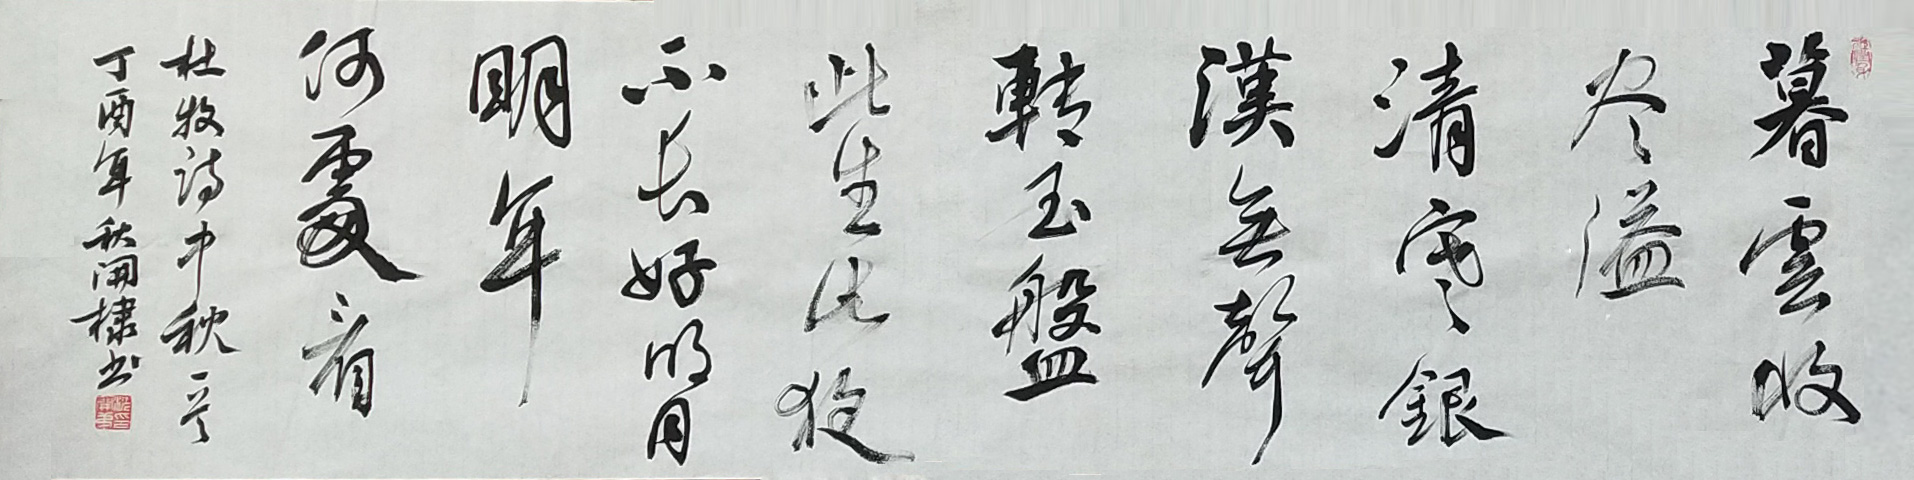 暮雲收
尽溢
清寒銀
漢無聲
轉玉盤
此生此夜
不长好明月
明年
何處看
杜牧诗中秋一首
丁酉年秋開棣书